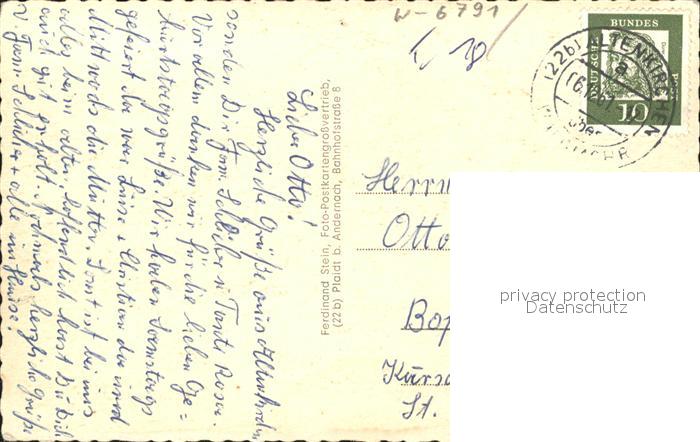 W-6791
BUNDES
DEUTSCHE
POST
10
(22b) ALTENKIRCHEN
a
über
Lieber Otto!
Herzliche Grüße aus Altenkirchen
senden Dir Fam. Schlicher u. Tante Rosa.
Vor allem danken wir für die lieben Ge=
burtstagsgrüße. Wir haben Samstags
gefeiert da war Luise + Christian da und
Mittwochs die Mutter. Sonst ist bei uns
alles beim alten. Hoffentlich hast Du Dich
auch gut erholt. Nochmals herzliche Grüße
v. Fam. Schlicher + alle im Hause.
Ferdinand Stein, Foto-Postkartengroßvertrieb,
(22 b) Plaidt b. Andernach, Bahnhofstraße 8
Herrn
Otto
Bop
Kurs
St.
privacy protection
Datenschutz